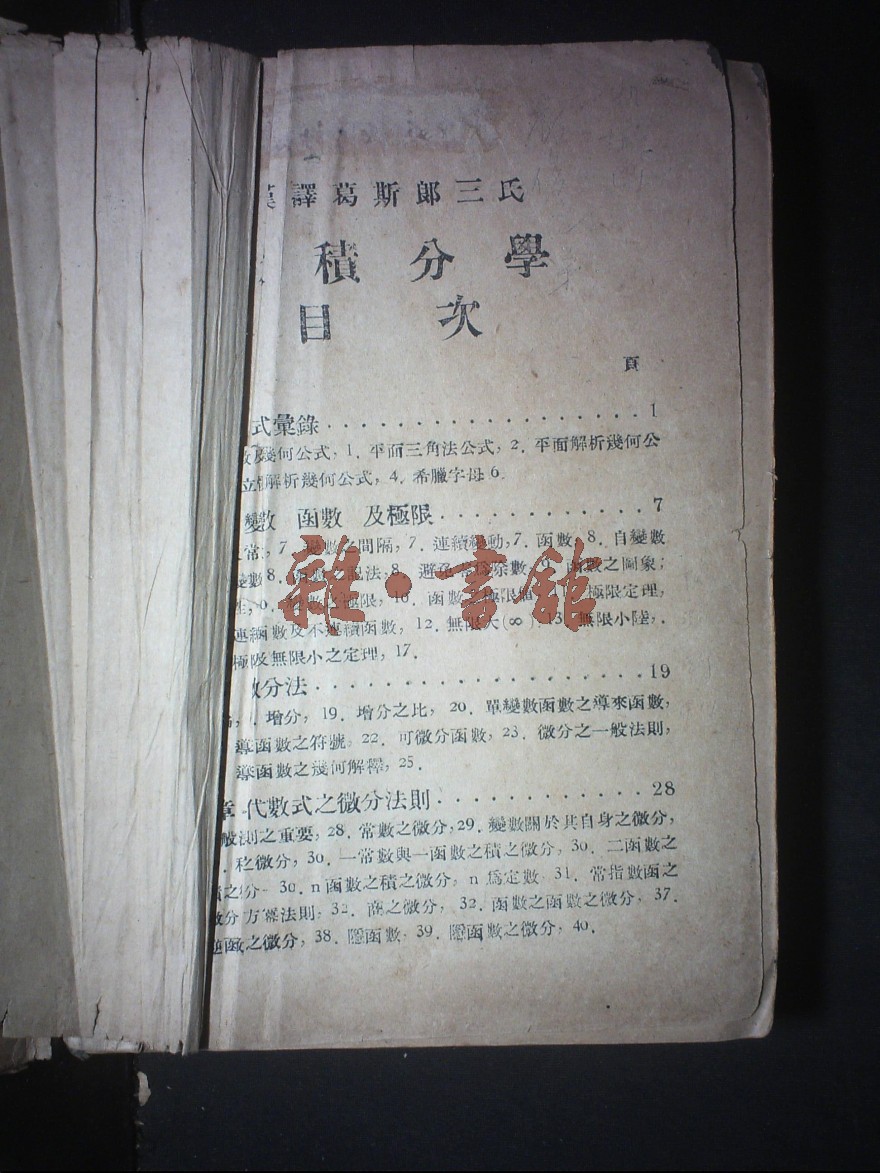 譯葛斯郎三氏
積分學
目次
頁
式彙錄 1
幾何公式, 1. 平面三角法公式, 2. 平面解析幾何公
解析幾何公式, 4. 希臘字母 6.
變數 函數 及極限 7
常, 7. 變數之間隔, 7. 連續變動, 7. 函數, 8. 自變數
變數 8. 函數之記法, 8. 避 除數, 9. 函數之圖象;
極限, 10. 函數之極限 極限定理,
連續函數及不連續函數, 12. 無限大(∞), 13. 無限小
極限及無限小之定理, 17.
雜·書館
微分法 19
增分, 19. 增分之比, 20. 單變數函數之導來函數,
導函數之符號, 22. 可微分函數, 23. 微分之一般法則,
導函數之幾何解釋, 25.
章 代數式之微分法則 28
般法則之重要, 28. 常數之微分, 29. 變數關於其自身之微分,
之微分, 30. 一常數與一函數之積之微分, 30. 二函數之
30. n函數之積之微分, n爲定數, 31. 常指數函之
微分方冪法則, 32. 商之微分, 32. 函數之函數之微分, 37.
之微分, 38. 隱函數, 39. 隱函數之微分, 40.